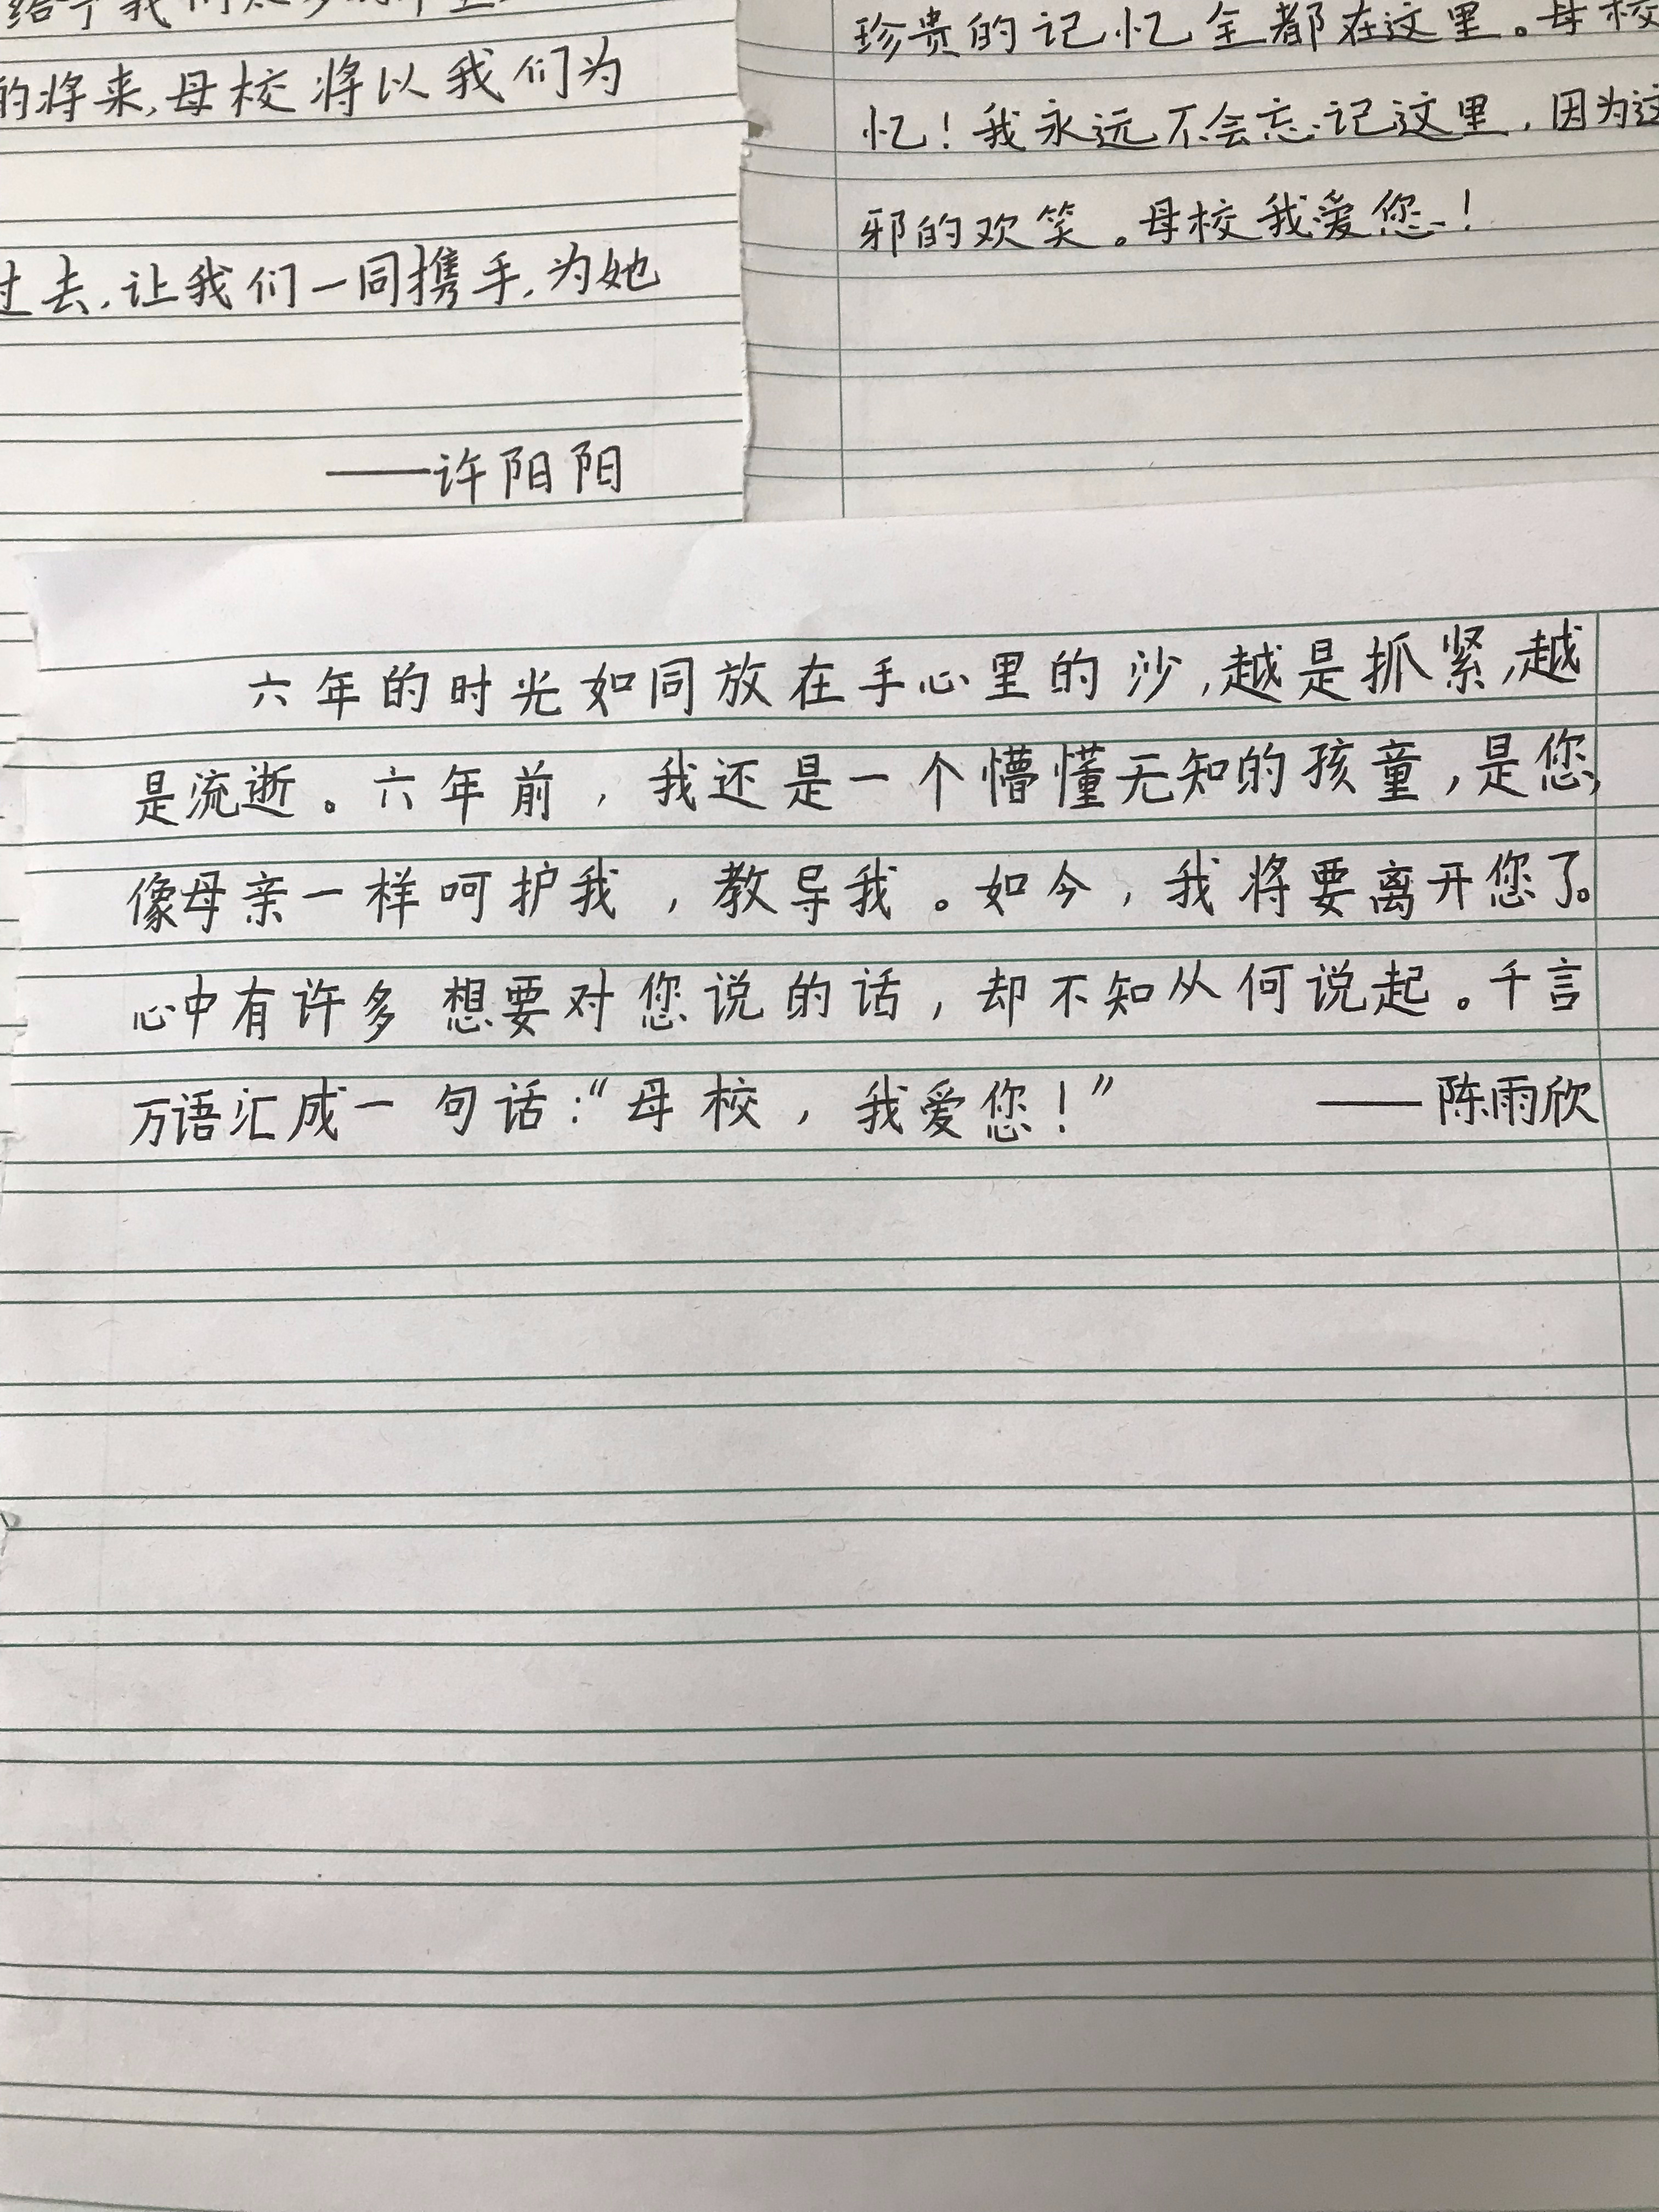 给了我们太多的
的将来,母校将以我们为
过去,让我们一同携手,为她
——许阳阳
珍贵的记忆全都在这里。母校
忆！我永远不会忘记这里,因为这
邪的欢笑。母校我爱您！
六年的时光如同放在手心里的沙,越是抓紧,越
是流逝。六年前,我还是一个懵懂无知的孩童,是您,
像母亲一样呵护我,教导我。如今,我将要离开您了。
心中有许多想要对您说的话,却不知从何说起。千言
万语汇成一句话:“母校,我爱您!”——陈雨欣